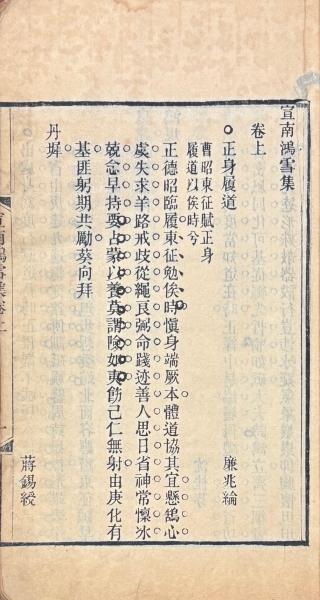 宣南鴻雪集
卷上
正身履道　廉兆綸
曹昭東征賦正身
履道以俟時兮
正德昭臨履東征勉俟時慎身端厥本體道協其宜懸鵠心
虔失求羊路戒歧從繩艮弼命踐迹善人思日省神常懍冰
兢念早持要占蒙以養莫謂險如夷飭己仁無射由庚化有
基匪躬期共勵葵向拜
丹墀　蔣錫綬
宣南鴻雪集卷上